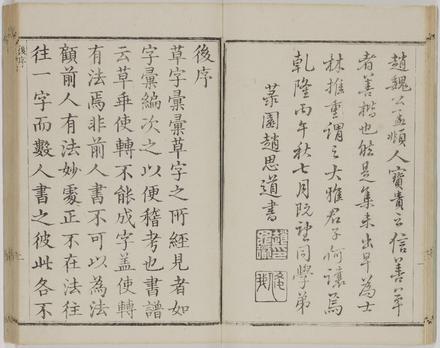 趙魏公孟頫人寶貴云信善草
者善楷也能是集未出早為士
林推重謂之大雅君子何讓焉
乾隆丙午秋七月既望同學弟
菉園趙思道書
後序
草字彙彙草字之所經見者如
字彙編次之以便稽考也書譜
云草乖使轉不能成字盖使轉
有法焉非前人書不可以為法
顧前人有法妙處正不在法往
往一字而數人書之彼此各不
後序